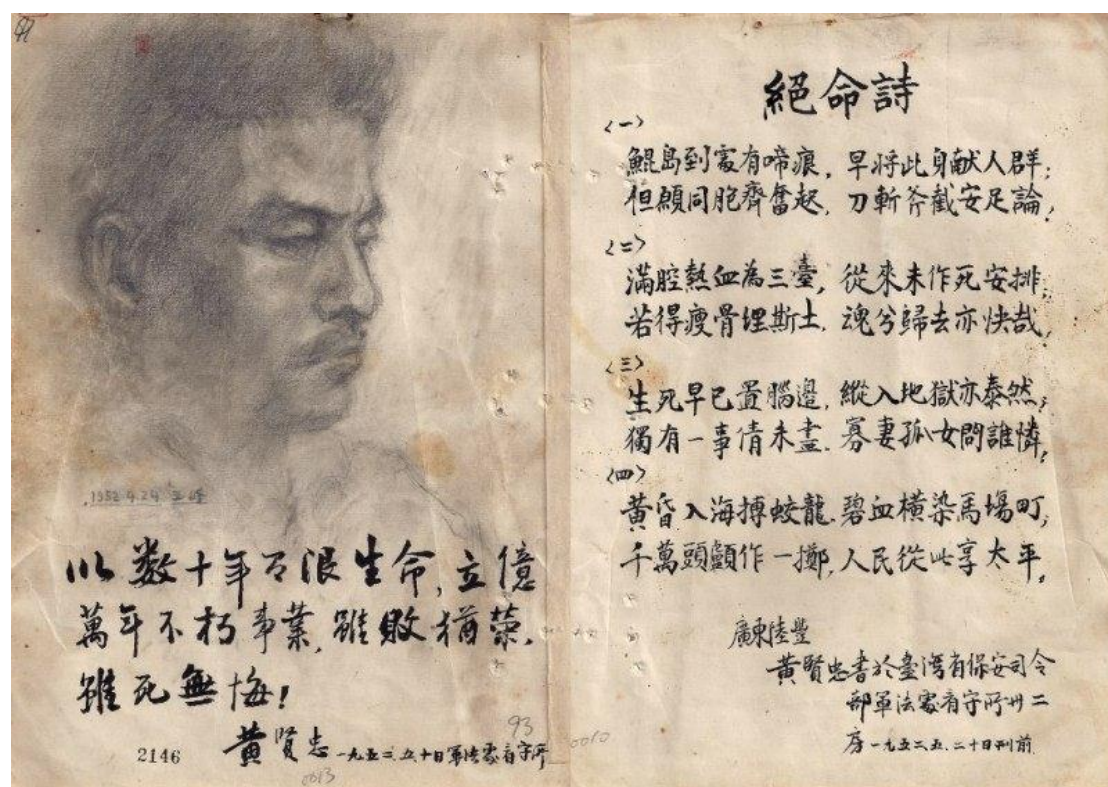 1952.4.24
以数十年有限生命,立億
萬年不朽事業,雖敗猶榮,
雖死無悔!
93
2146
黃賢忠 一九五二.五.十日軍法處看守所
0013
0010
絕命詩
<一>
鯤島到處有啼痕,早將此身献人群;
但願同胞齊奮起,刀斬斧截安足論,
<二>
滿腔熱血為三臺,從來未作死安排;
若得瘦骨埋斯土,魂兮歸去亦快哉,
<三>
生死早已置腦邊,縱入地獄亦泰然;
獨有一事情未盡,寡妻孤女問誰憐,
<四>
黃昏入海搏蛟龍,碧血橫染馬塲町;
千萬頭顱作一擲,人民從此享太平,
廣東陸豐
黃賢忠書於臺灣省保安司令
部軍法處看守所卅二
房 一九五二.五.二十日刑前